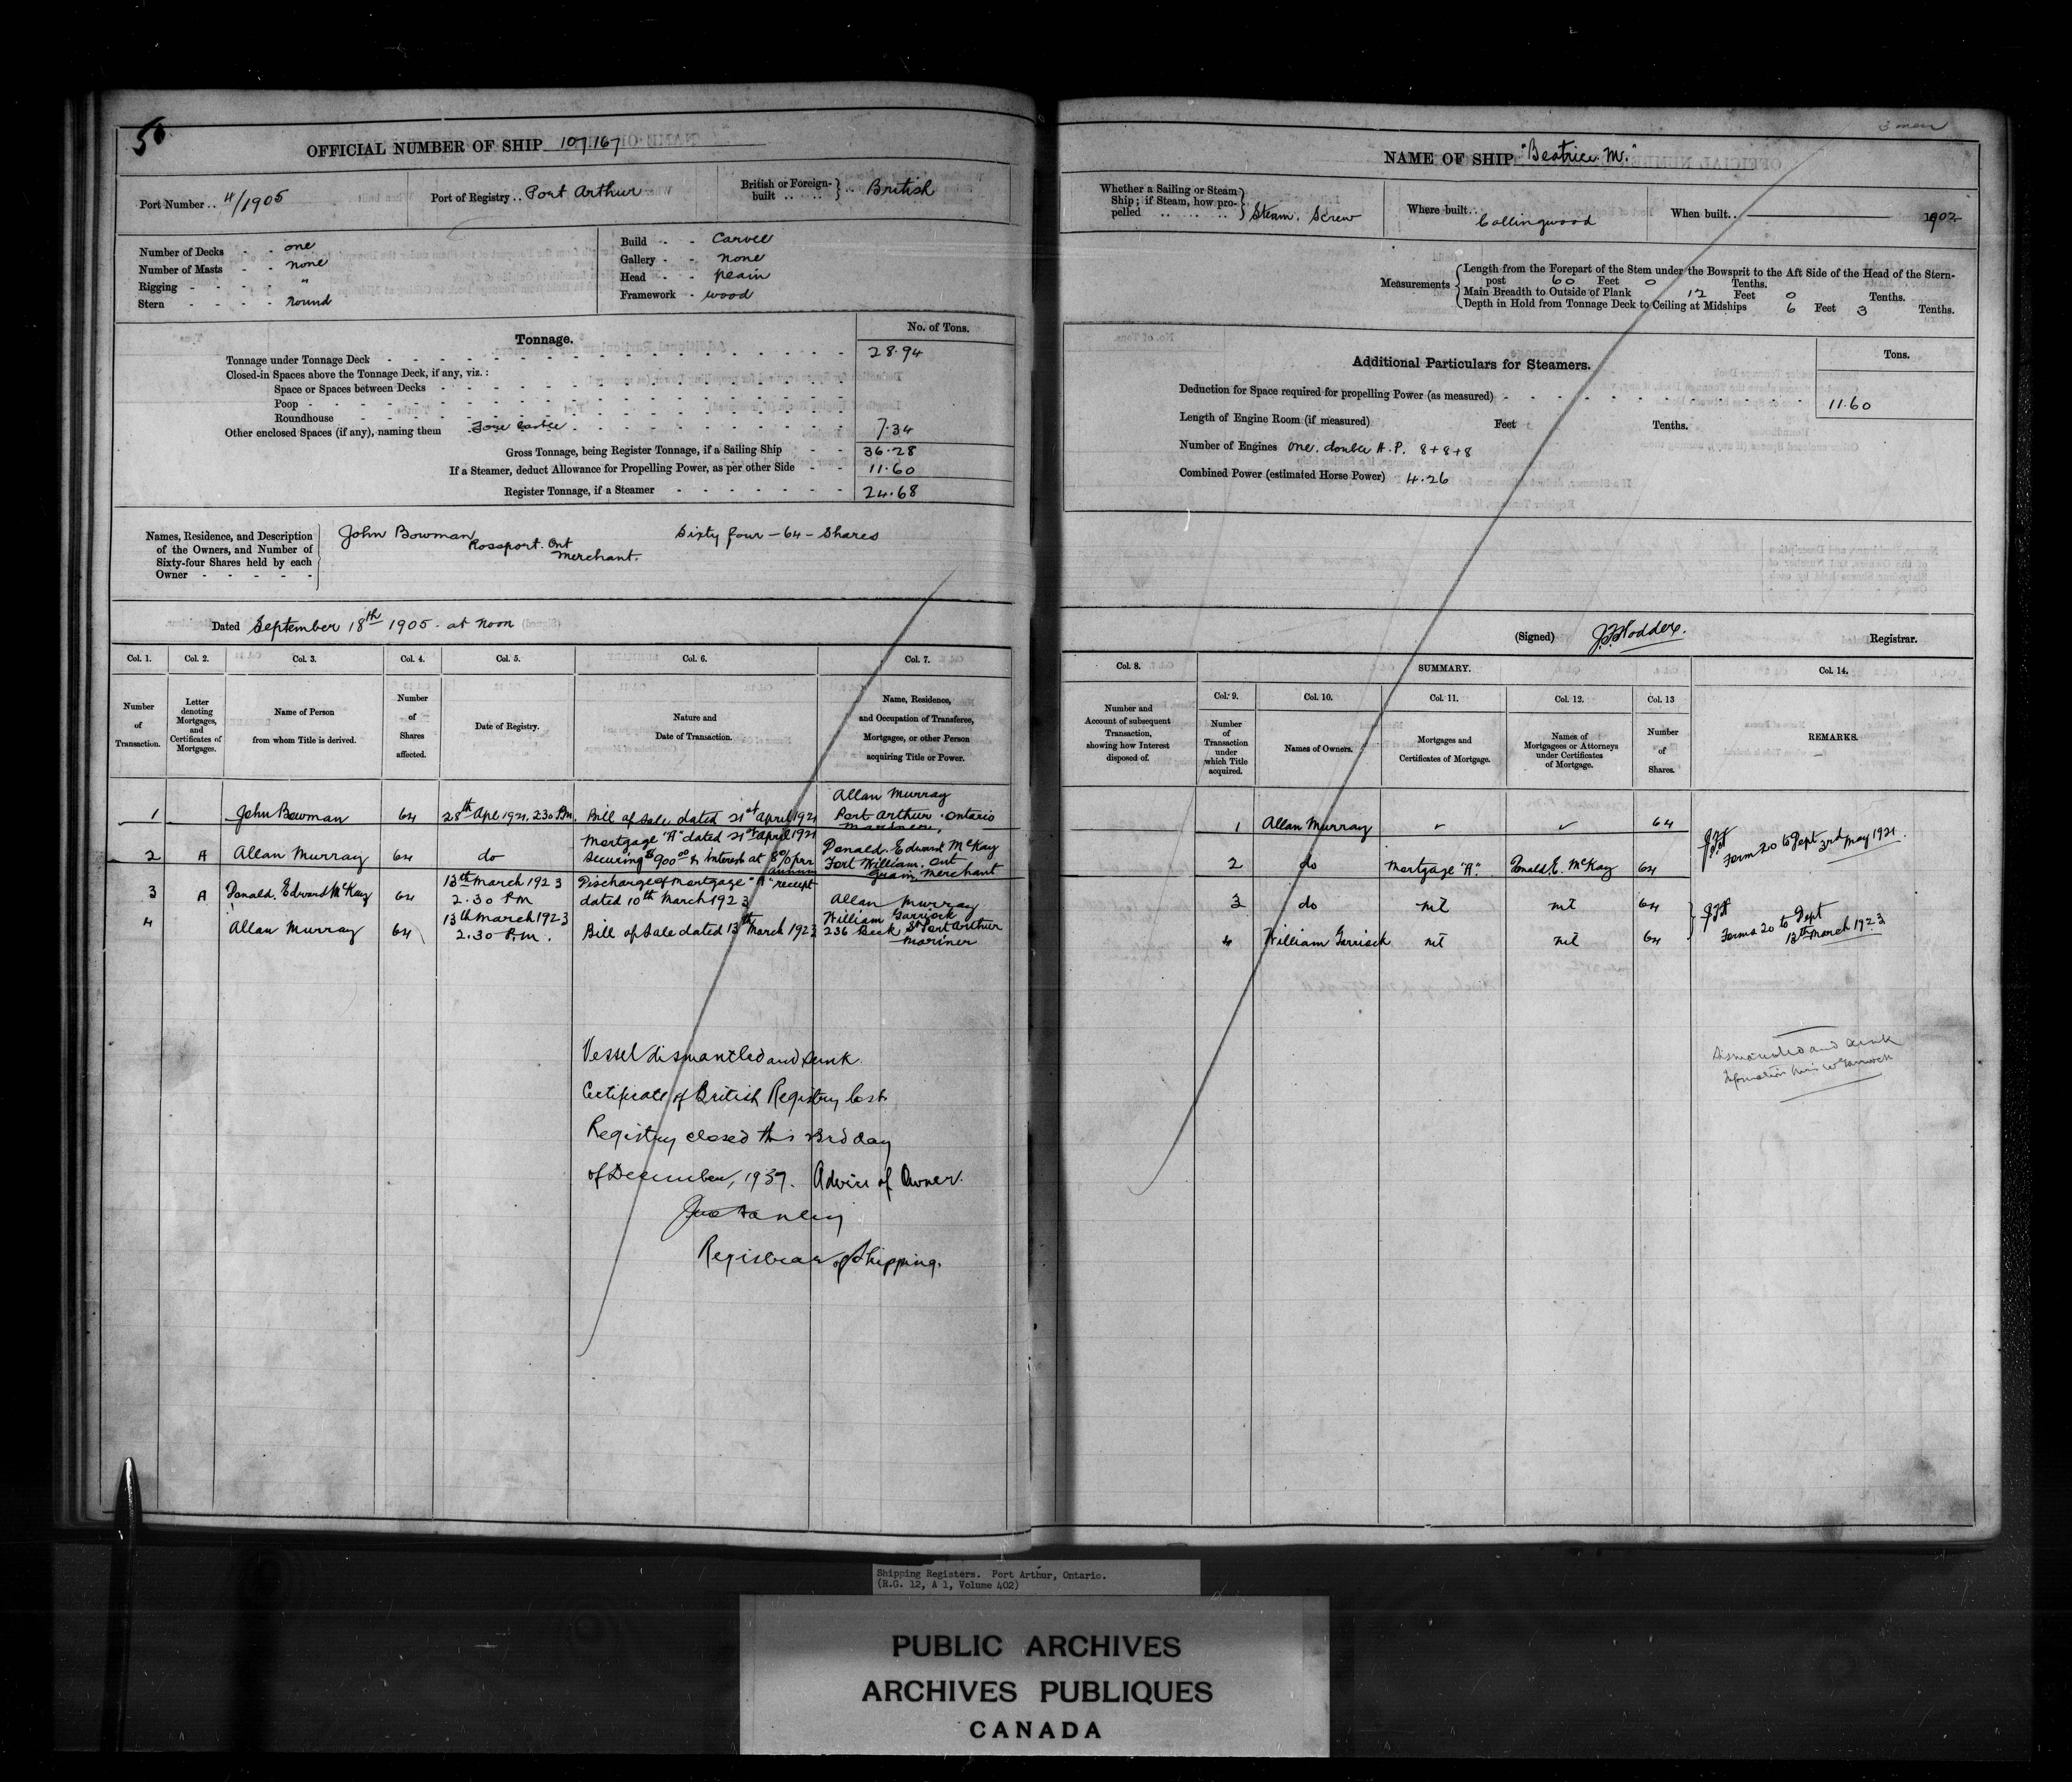 50
OFFICIAL NUMBER OF SHIP 107,167
Port Number .. 4/1905
Port of Registry .. Port Arthur
British or Foreign-built .. .. .. British
Number of Decks - - one
Number of Masts - - none
Rigging - - - - "
Stern - - - - round
Build - - Carvel
Gallery - - none
Head - - plain
Framework - wood
Tonnage.
No. of Tons.
Tonnage under Tonnage Deck 28.94
Closed-in Spaces above the Tonnage Deck, if any, viz.:
Space or Spaces between Decks
Poop
Roundhouse
Other enclosed Spaces (if any), naming them Fore Castle 7.34
Gross Tonnage, being Register Tonnage, if a Sailing Ship 36.28
If a Steamer, deduct Allowance for Propelling Power, as per other Side 11.60
Register Tonnage, if a Steamer 24.68
Names, Residence, and Description
of the Owners, and Number of
Sixty-four Shares held by each
Owner
John Bowman Sixty four - 64 - Shares
Rossport. Ont
Merchant.
Dated September 18th 1905. at noon
Col. 1. Col. 2. Col. 3. Col. 4. Col. 5. Col. 6. Col. 7.
Number of Transaction.
Letter denoting Mortgages, and Certificates of Mortgages.
Name of Person from whom Title is derived.
Number of Shares affected.
Date of Registry.
Nature and Date of Transaction.
Name, Residence, and Occupation of Transferee, Mortgagee, or other Person acquiring Title or Power.
1 John Bowman 64 28th Apl 1921. 2.30 P.M. Bill of Sale dated 21st April 1921 Allan Murray
Port Arthur. Ontario
Mariner,
2 A Allan Murray 64 do Mortgage "A" dated 21st April 1921
securing $900.00 & Interest at 8% per annum
Donald. Edward McKay
Fort William. Ont
Grain Merchant
3 A Donald. Edward McKay 64 13th March 1923
2.30 PM
Discharge of Mortgage "A" receipt
dated 10th March 1923
Allan Murray
4 Allan Murray 64 13th March 1923
2.30 P.M.
Bill of Sale dated 13th March 1923
William Garriock
236 Beck St Port Arthur
Mariner
Vessel dismantled and sunk.
Certificate of British Registry lost.
Registry closed this 23rd day
of December, 1937. Advice of Owner.
Registrar of Shipping.
3 men
NAME OF SHIP "Beatrice M."
Whether a Sailing or Steam
Ship; if Steam, how pro-
pelled .. .. .. .. Steam. Screw
Where built.. Collingwood
When built.. 1902
Measurements
Length from the Forepart of the Stem under the Bowsprit to the Aft Side of the Head of the Stern-
post 60 Feet 0 Tenths.
Main Breadth to Outside of Plank 12 Feet 0 Tenths.
Depth in Hold from Tonnage Deck to Ceiling at Midships 6 Feet 3 Tenths.
Additional Particulars for Steamers.
Tons.
Deduction for Space required for propelling Power (as measured) 11.60
Length of Engine Room (if measured) Feet Tenths.
Number of Engines one. double H.P. 8+8+8
Combined Power (estimated Horse Power) 4.26
(Signed) Registrar.
Col. 8. SUMMARY. Col. 14.
Col. 9. Col. 10. Col. 11. Col. 12. Col. 13
Number and Account of subsequent Transaction, showing how Interest disposed of.
Number of Transaction under which Title acquired.
Names of Owners.
Mortgages and Certificates of Mortgage.
Names of Mortgagees or Attorneys under Certificates of Mortgage.
Number of Shares.
REMARKS.
1 Allan Murray ✓ ✓ 64
Form 20 to Dept 3rd May 1921.
2 do Mortgage "A". Donald. E. McKay 64
3 do nil nil 64
4 William Garriock nil nil 64
Forms 20 to Dept
13th March 1923
Dismantled and sunk
Shipping Registers. Port Arthur, Ontario.
(R.G. 12, A 1, Volume 402)
PUBLIC ARCHIVES
ARCHIVES PUBLIQUES
CANADA